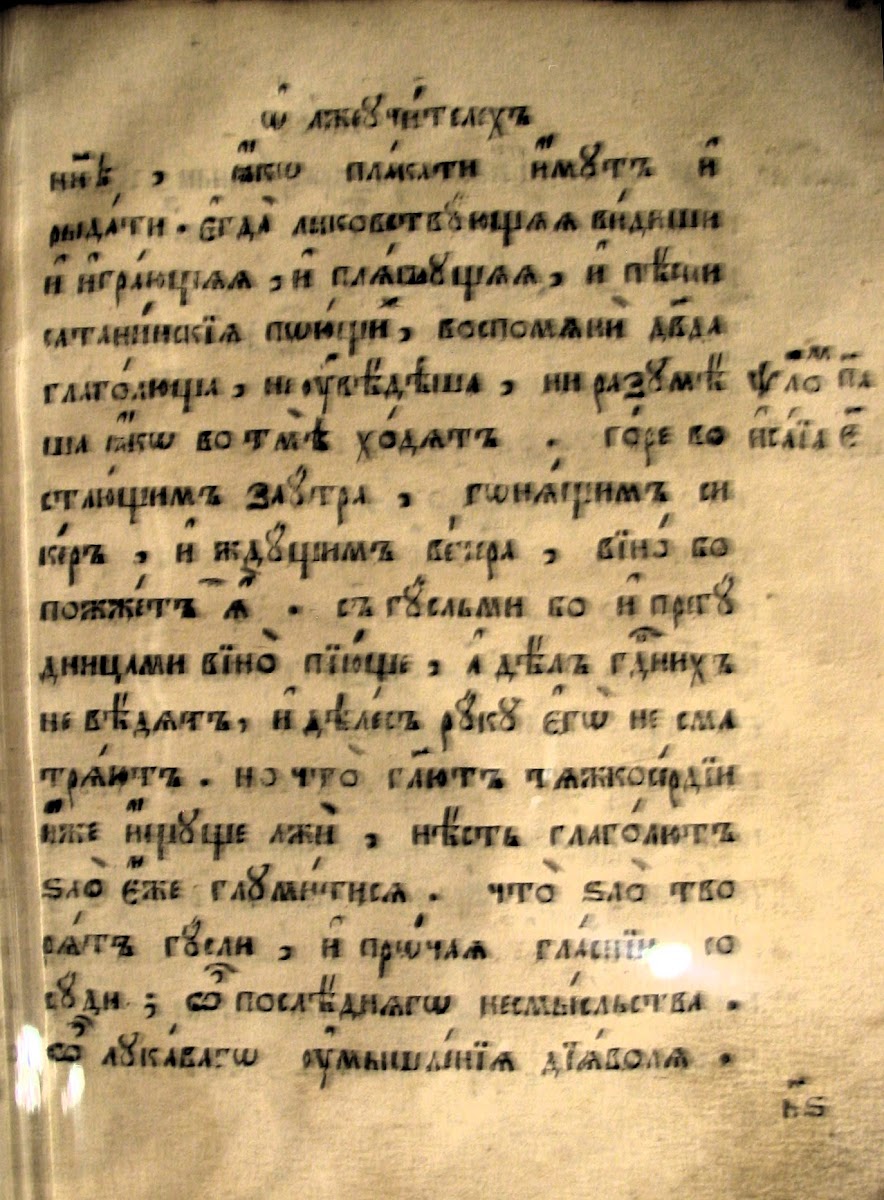 Ѡ҆ лжеꙋчи́телехъ
ни́ѣ , ꙗ҆́кѡ пла́кати и҆́мꙋтъ и҆
рыда́ти . є҆гда̀ ликовствꙋ́ющаѧ ви́диши
и҆ и҆гра́ющаѧ , и҆ плѧ́шꙋщаѧ , и҆ пѣ́сни
сатани́нскїѧ пою́щи , воспомѧнѝ дв҃да
глаго́люща , не ᲂу҆вѣ́дѣша , ни разꙋмѣ́
ша ꙗ҆́кѡ во тмѣ̀ хо́дѧтъ . го́ре во
ста́ющимъ заꙋ́тра , гонѧ́щимъ си
ке́ръ , и҆ ждꙋ́щимъ ве́чера , вїно́ бо
пожже́тъ ѧ҆̀ . съ гꙋ́сльми бо и҆ прегꙋ
дницами вїно̀ пїю́ще , а҆ дѣ́лъ гдⷭ҇нихъ
не вѣ́дѧтъ , и҆ дѣ́лесъ рꙋкꙋ̀ є҆гѡ̀ не сма
трѧ́ютъ . но что̀ гл҃ютъ тѧжкосе́рдїи
и҆̀же и҆́щꙋще лжѝ , нѣ́сть глаго́лютъ
ѕло̀ є҆́же глꙋми́тисѧ . что̀ ѕло̀ тво
рѧ́тъ гꙋ́сли , и҆ прѡ́чаѧ гла́снїи со
сꙋ́ди ; ѽ послѣ́днѧгѡ несмы́сльства .
ѽ лꙋка́вагѡ ᲂу҆мышле́нїѧ дїѧ́волѧ .
ѱло́м па
и҆са́їа є҃
н҃ѕ